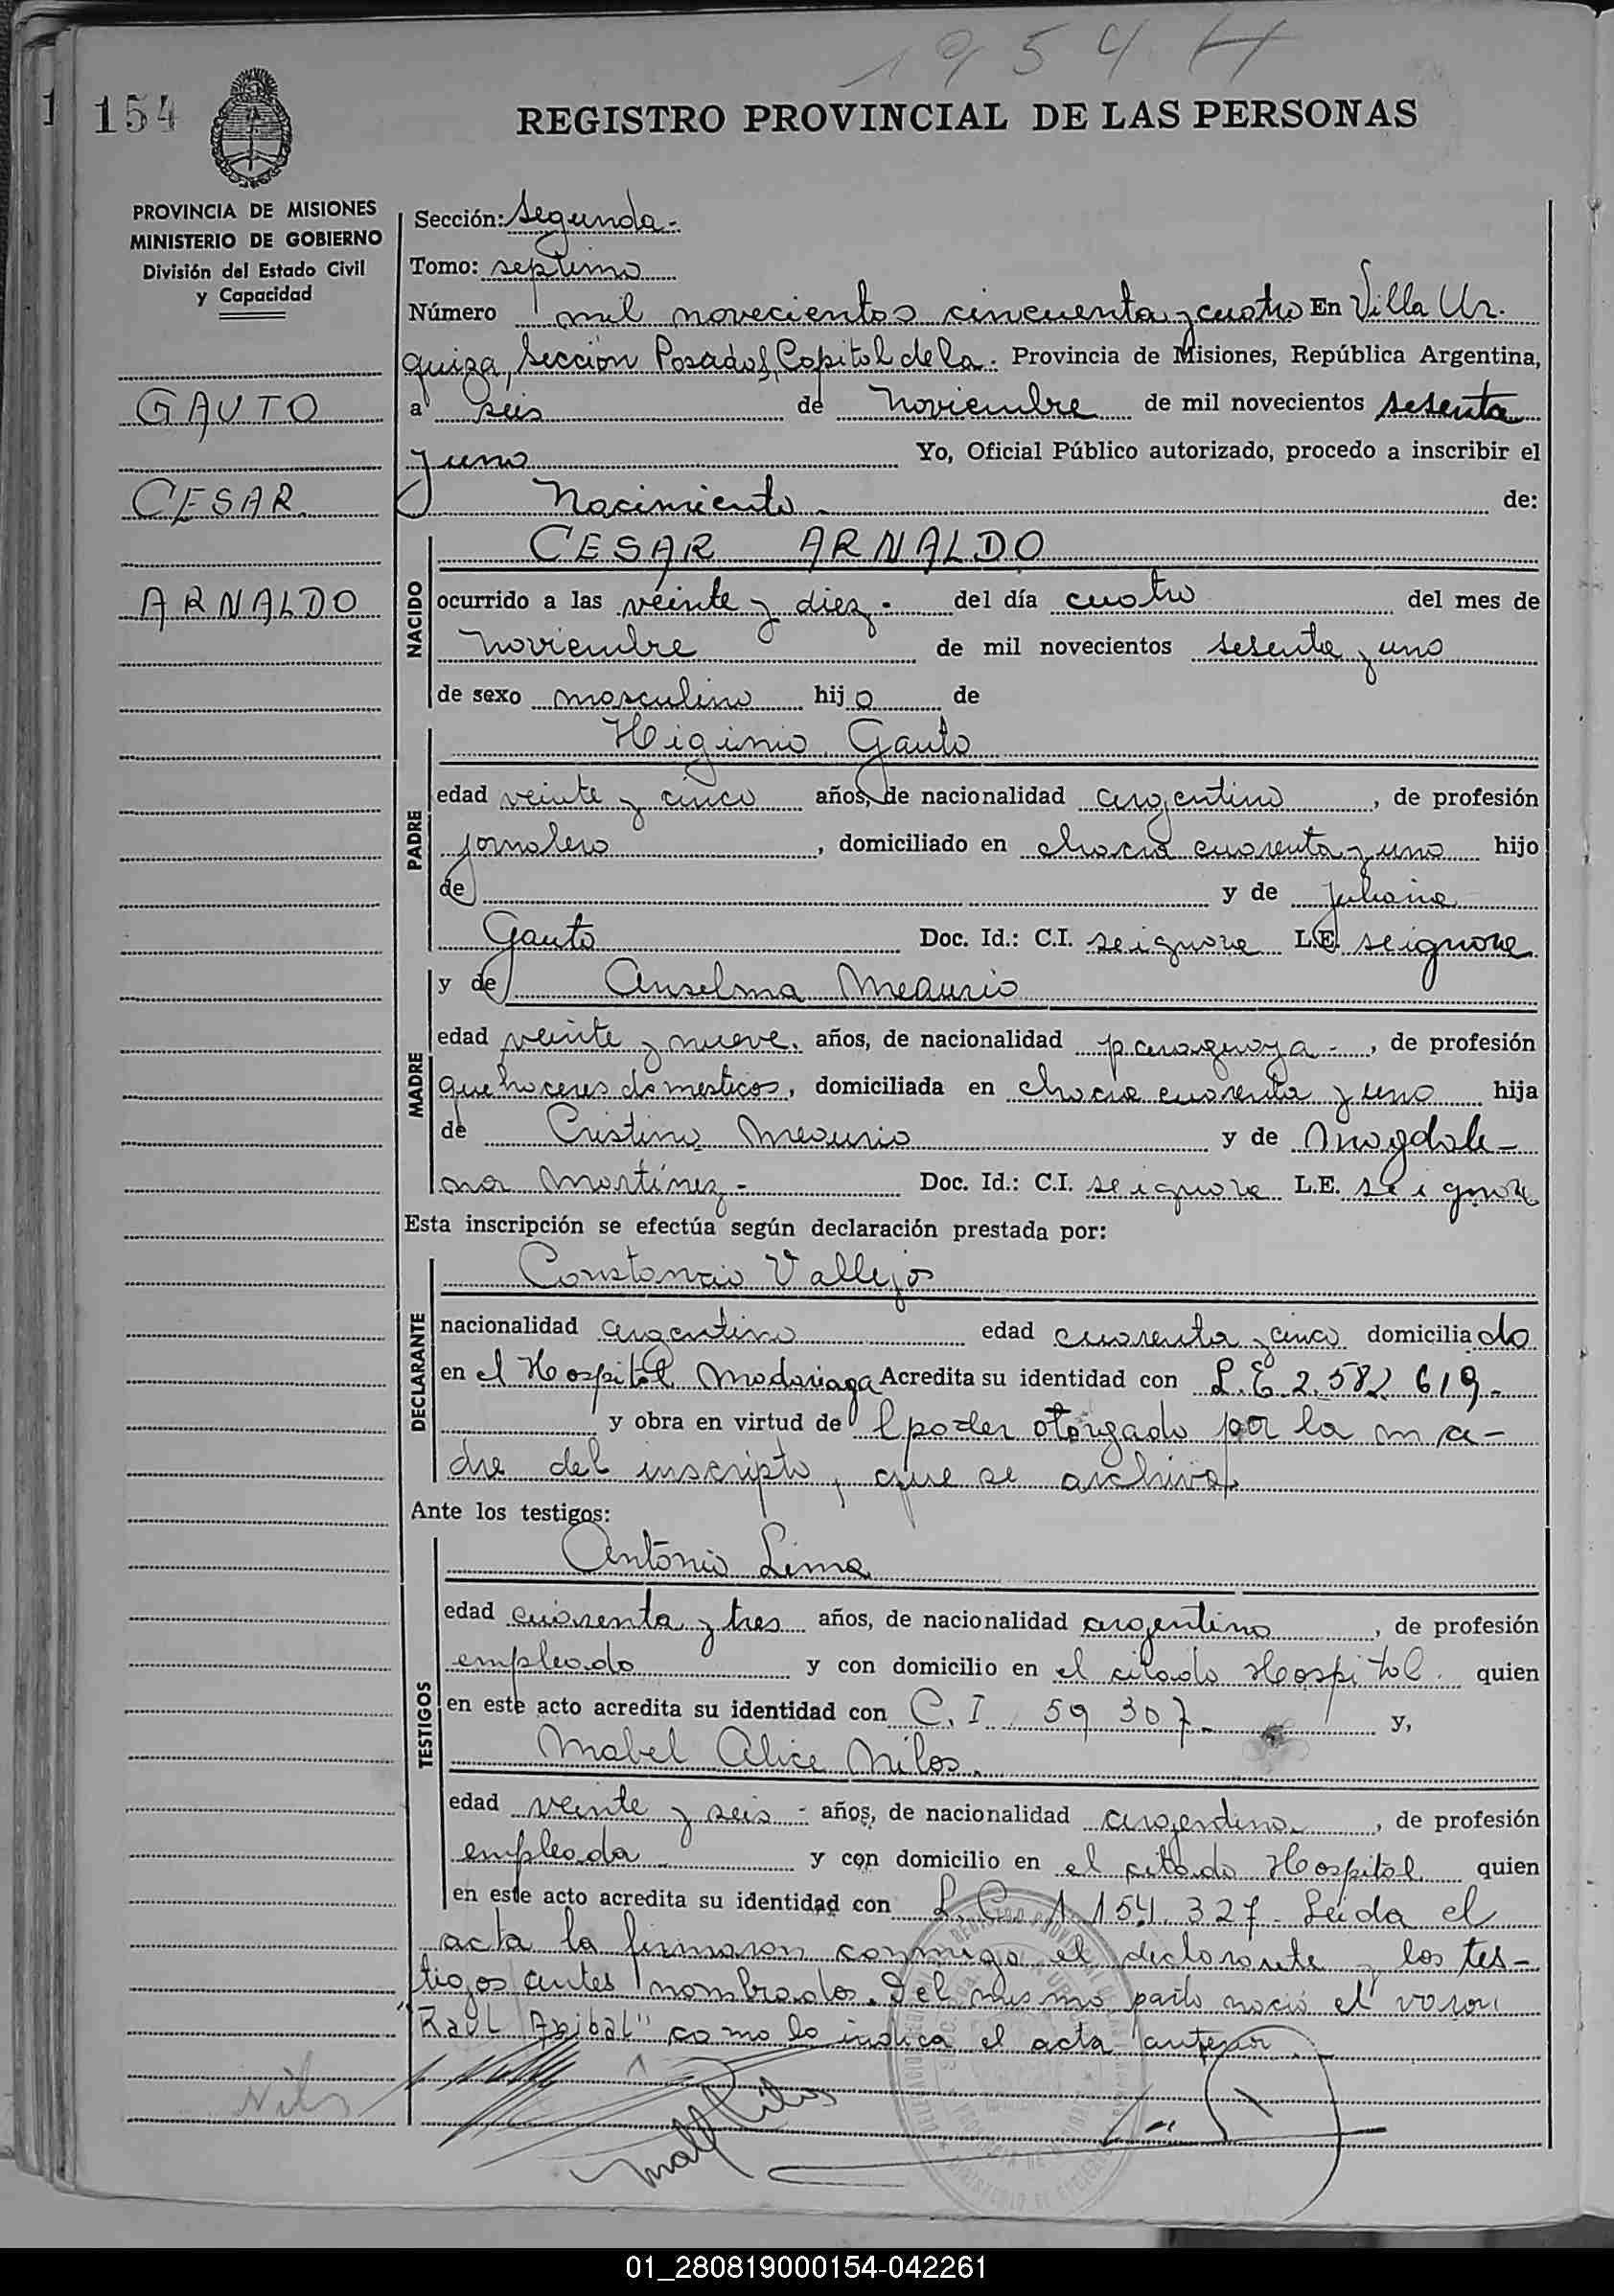 1954 H
154
REGISTRO PROVINCIAL DE LAS PERSONAS
PROVINCIA DE MISIONES
MINISTERIO DE GOBIERNO
División del Estado Civil
y Capacidad
GAUTO
CESAR
ARNALDO
Sección: Segunda.-
Tomo: septimo
Número mil novecientos cincuenta y cuatro En Villa Ur-
quiza, Sección Posadas, Capital de la. Provincia de Misiones, República Argentina,
a seis de Noviembre de mil novecientos sesenta
y uno Yo, Oficial Público autorizado, procedo a inscribir el
Nacimiento. de:
NACIDO
CESAR ARNALDO
ocurrido a las veinte y diez.- del día cuatro del mes de
Noviembre de mil novecientos sesenta y uno
de sexo masculino hijo de
PADRE
Higinio Gauto
edad veinte y cinco años, de nacionalidad argentino, de profesión
jornalero, domiciliado en chacra cuarenta y uno hijo
de y de Juliana
Gauto Doc. Id.: C.I. se ignora L.E. se ignora
MADRE
y de Anselma Meaurio
edad veinte y nueve. años, de nacionalidad paraguaya.-, de profesión
quehaceres domesticos, domiciliada en chacra cuarenta y uno hija
de Cristino Meaurio y de Magdale-
na Martínez.- Doc. Id.: C.I. se ignora L.E. se ignora
Esta inscripción se efectúa según declaración prestada por:
DECLARANTE
Constancio Vallejos
nacionalidad argentino edad cuarenta y cinco domiciliado
en el Hospital Madariaga Acredita su identidad con L.E. 2.582.619.-
y obra en virtud del poder otorgado por la ma-
dre del inscripto, que se archiva
Ante los testigos:
TESTIGOS
Antonio Lima
edad cuarenta y tres años, de nacionalidad argentino, de profesión
empleado y con domicilio en el citado Hospital. quien
en este acto acredita su identidad con C.I. 59 307.- y,
Mabel Alice Nilos.
edad veinte y seis.- años, de nacionalidad argentina, de profesión
empleada y con domicilio en el citado Hospital quien
en este acto acredita su identidad con L.C. 1.154.327.- Leida el
acta la firmaron conmigo el declarante y los tes-
tigos antes nombrados. Del mismo parto nació el varon
"Raul Anibal" como lo indica el acta anterior.-
01_280819000154-042261